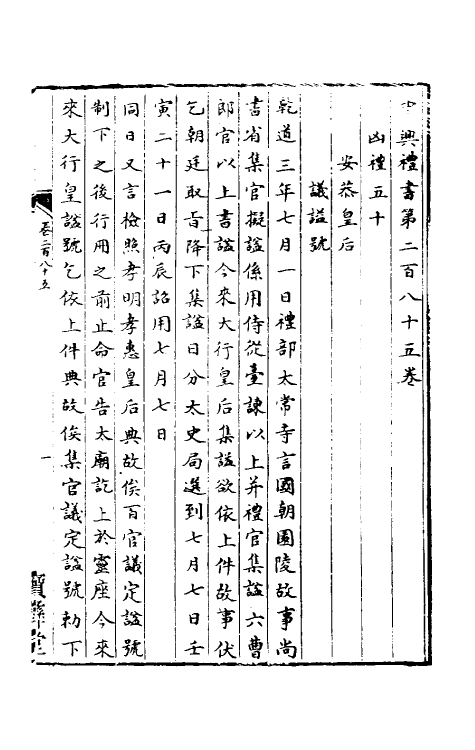 中興禮書第二百八十五卷
凶禮五十
安恭皇后
議謚號
乾道三年七月一日禮部太常寺言國朝園陵故事尚
書省集官擬謚係用侍從臺諫以上并禮官集謚六曹
郎官以上書謚今來大行皇后集謚欲依上件故事伏
乞朝廷取旨降下集謚日分太史局選到七月七日壬
寅二十一日丙辰詔用七月七日
同日又言檢照孝明孝惠皇后典故俟百官議定謚號
制下之後行用之前止命官告太廟訖上於靈座今來
來大行皇謚號乞依上件典故俟集官議定謚號勅下
卷二百八十五
一